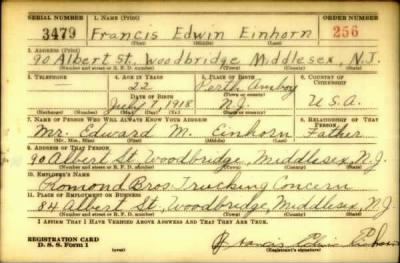 SERIAL NUMBER 1. NAME (Print) ORDER NUMBER
3479 Francis Edwin Einhorn 256
(First) (Middle) (Last)
2. ADDRESS (Print)
90 Albert St., Woodbridge Middlesex, N.J.
(Number and street or R. F. D. number) (Town) (County) (State)
3. TELEPHONE 4. AGE IN YEARS 5. PLACE OF BIRTH 6. COUNTRY OF CITIZENSHIP
22 Perth Amboy
DATE OF BIRTH (Town or county)
July 7, 1918 N.J. U.S.A.
(Exchange) (Number) (Mo.) (Day) (Yr.) (State or country)
7. NAME OF PERSON WHO WILL ALWAYS KNOW YOUR ADDRESS 8. RELATIONSHIP OF THAT PERSON
Mr. Edward M. Einhorn Father
(Mr., Mrs., Miss) (First) (Middle) (Last)
9. ADDRESS OF THAT PERSON
90 Albert St., Woodbridge, Middlesex, N.J.
(Number and street or R. F. D. number) (Town) (County) (State)
10. EMPLOYER'S NAME
Romond Bros. Trucking Concern
11. PLACE OF EMPLOYMENT OR BUSINESS
84 Albert St., Woodbridge, Middlesex, N.J.
(Number and street or R. F. D. number) (Town) (County) (State)
I AFFIRM THAT I HAVE VERIFIED ABOVE ANSWERS AND THAT THEY ARE TRUE.
REGISTRATION CARD
D. S. S. Form 1 (over) Francis Edwin Einhorn
(Registrant's signature)